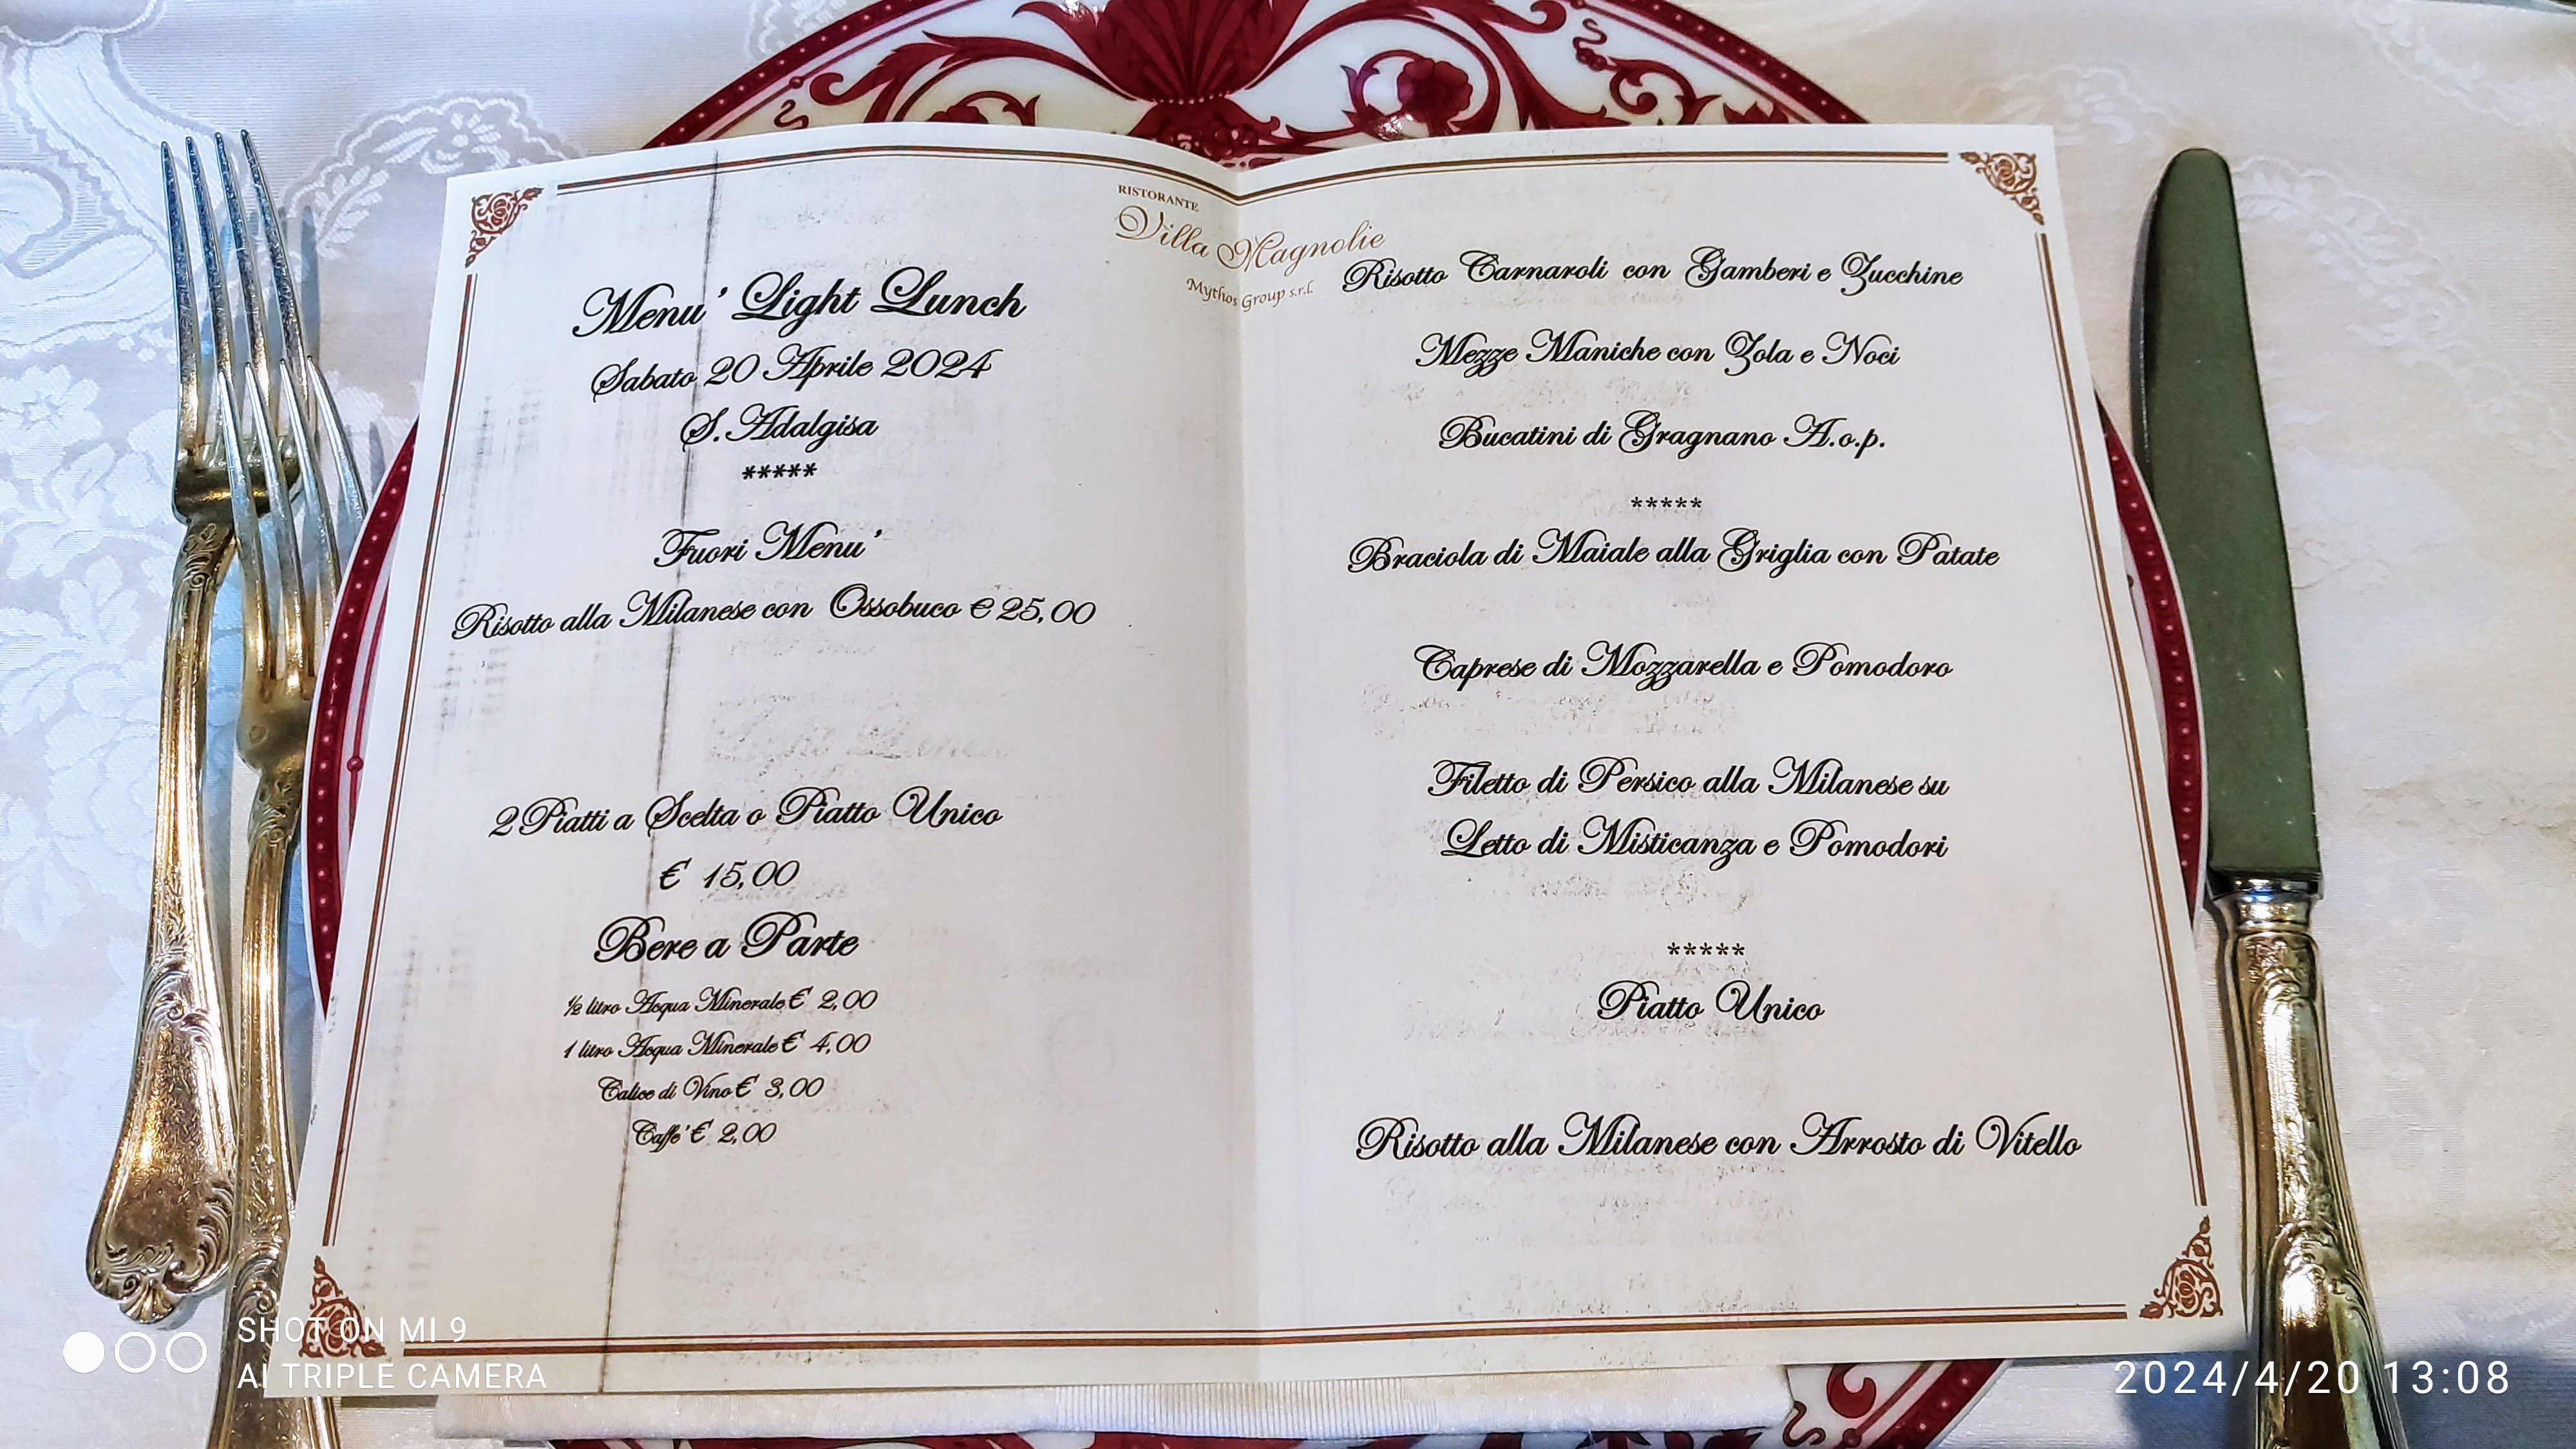 RISTORANTE
Villa Magnolie
Mythos Group s.r.l.
Menu' Light Lunch
Sabato 20 Aprile 2024
S. Adalgisa
*****
Fuori Menu'
Risotto alla Milanese con Ossobuco € 25,00
2 Piatti a Scelta o Piatto Unico
€ 15,00
Bere a Parte
½ litro Acqua Minerale € 2,00
1 litro Acqua Minerale € 4,00
Calice di Vino € 3,00
Caffe' € 2,00
Risotto Carnaroli con Gamberi e Zucchine
Mezze Maniche con Zola e Noci
Bucatini di Gragnano A.o.p.
*****
Braciola di Maiale alla Griglia con Patate
Caprese di Mozzarella e Pomodoro
Filetto di Persico alla Milanese su
Letto di Misticanza e Pomodori
*****
Piatto Unico
Risotto alla Milanese con Arrosto di Vitello
SHOT ON MI 9
AI TRIPLE CAMERA
2024/4/20 13:08